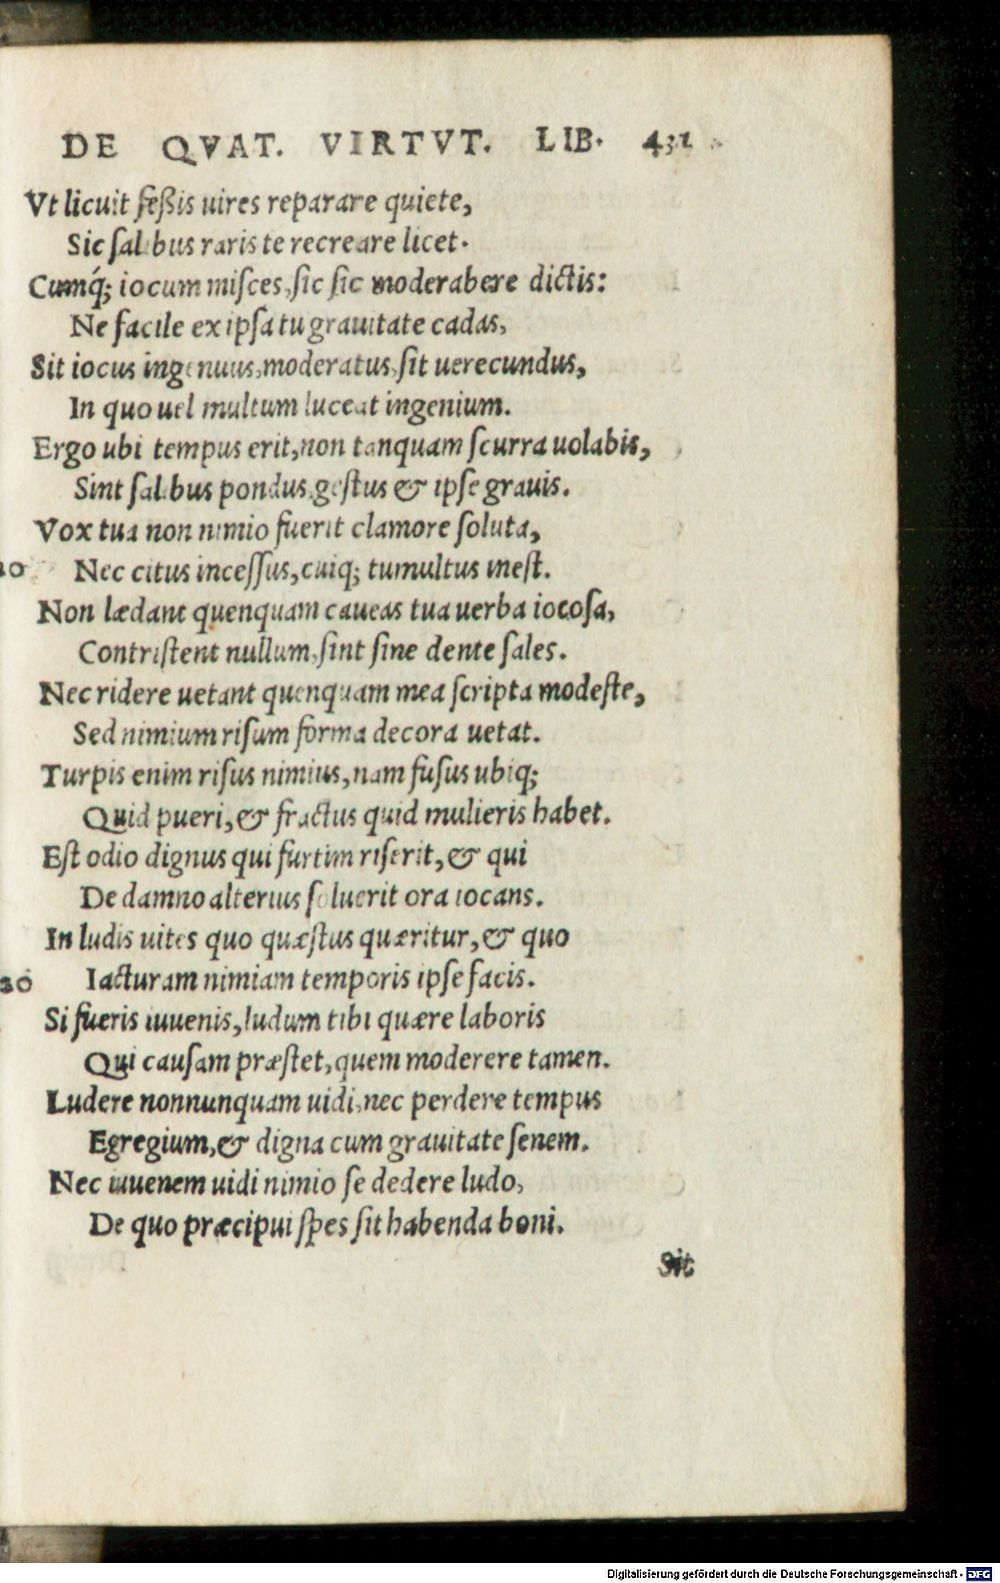 DE QVAT. VIRTVT. LIB. 431
Vt licuit feßis uires reparare quiete,
Sic salibus raris te recreare licet.
Cumq́; iocum misces, sic sic moderabere dictis:
Ne facile ex ipsa tu grauitate cadas,
Sit iocus ingenuus, moderatus, sit uerecundus,
In quo uel multum luceat ingenium.
Ergo ubi tempus erit, non tanquam scurra uolabis,
Sint salibus pondus, gestus & ipse grauis.
Vox tua non nimio fuerit clamore soluta,
10 Nec citus incessus, cuiq; tumultus inest.
Non lædant quenquam caueas tua uerba iocosa,
Contristent nullum, sint sine dente sales.
Nec ridere uetant quenquam mea scripta modeste,
Sed nimium risum forma decora uetat.
Turpis enim risus nimius, nam fusus ubiq;
Quid pueri, & fractus quid mulieris habet.
Est odio dignus qui furtim riserit, & qui
De damno alterius soluerit ora iocans.
In ludis uites quo quæstus quæritur, & quo
20 Iacturam nimiam temporis ipse facis.
Si fueris iuuenis, ludum tibi quære laboris
Qui causam præstet, quem moderere tamen.
Ludere nonnunquam uidi, nec perdere tempus
Egregium, & digna cum grauitate senem.
Nec iuuenem uidi nimio se dedere ludo,
De quo præcipui spes sit habenda boni.
Sit
Digitalisierung gefördert durch die Deutsche Forschungsgemeinschaft - DFG